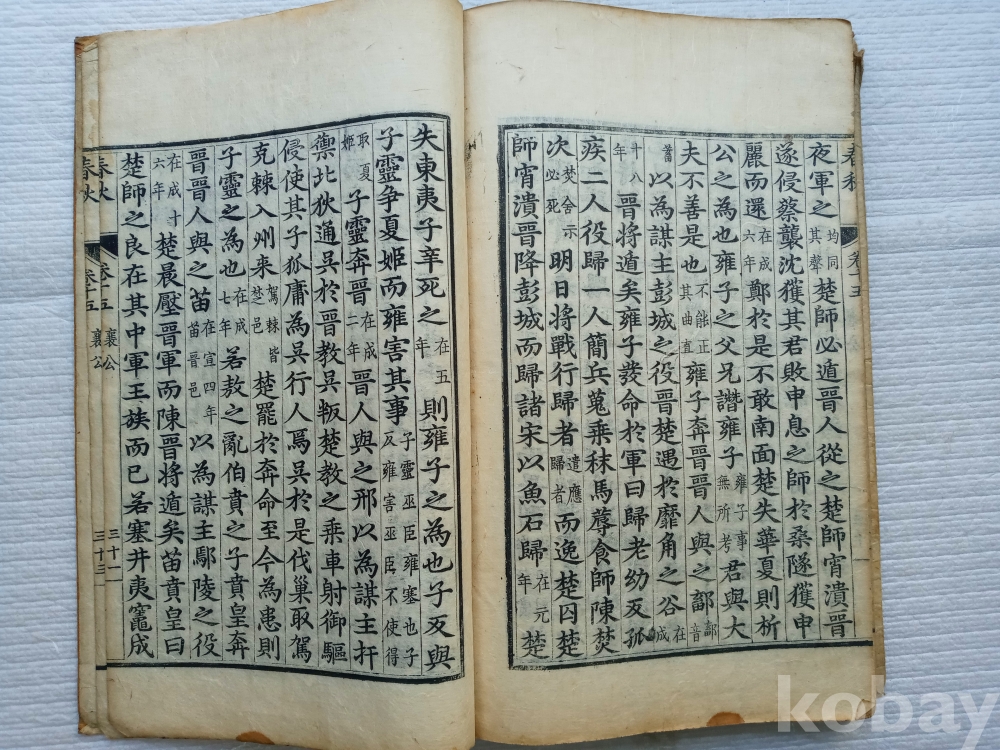 夜軍之均同其聲楚師必遁晉人從之楚師宵潰晉
遂侵蔡襲沈獲其君敗申息之師於桑隧獲申
麗而還在成六年鄭於是不敢南面楚失華夏則析
公之為也雍子之父兄譖雍子雍子事無所考君與大
夫不善是也不能正其曲直雍子奔晉晉人與之鄐鄐音
畜以為謀主彭城之役晉楚遇於靡角之谷在成
十八年晉將遁矣雍子發命於軍曰歸老幼反孤
疾二人役歸一人簡兵蒐乘秣馬蓐食師陳焚
次焚舍示必死明日將戰行歸者遣應歸者而逸楚囚楚
師宵潰晉降彭城而歸諸宋以魚石歸在元年楚
失東夷子辛死之在五年則雍子之為也子反與
子靈爭夏姬而雍害其事子靈巫臣雍塞也子反雍害巫臣不使得
取夏姬子靈奔晉在成二年晉人與之邢以為謀主扞
禦北狄通吳於晉教吳叛楚教之乘車射御驅
侵使其子狐庸為吳行人焉吳於是伐巢取駕
克棘入州來駕棘皆楚邑楚罷於奔命至今為患則
子靈之為也在成七年若敖之亂伯賁之子賁皇奔
晉晉人與之苗在宣四年苗晉邑以為謀主鄢陵之役
在成十六年楚晨壓晉軍而陳晉將遁矣苗賁皇曰
楚師之良在其中軍王族而已若塞井夷竈成
春秋 卷十五 襄公
春秋 卷十五 襄公 三十三
春秋 卷十五
kobay